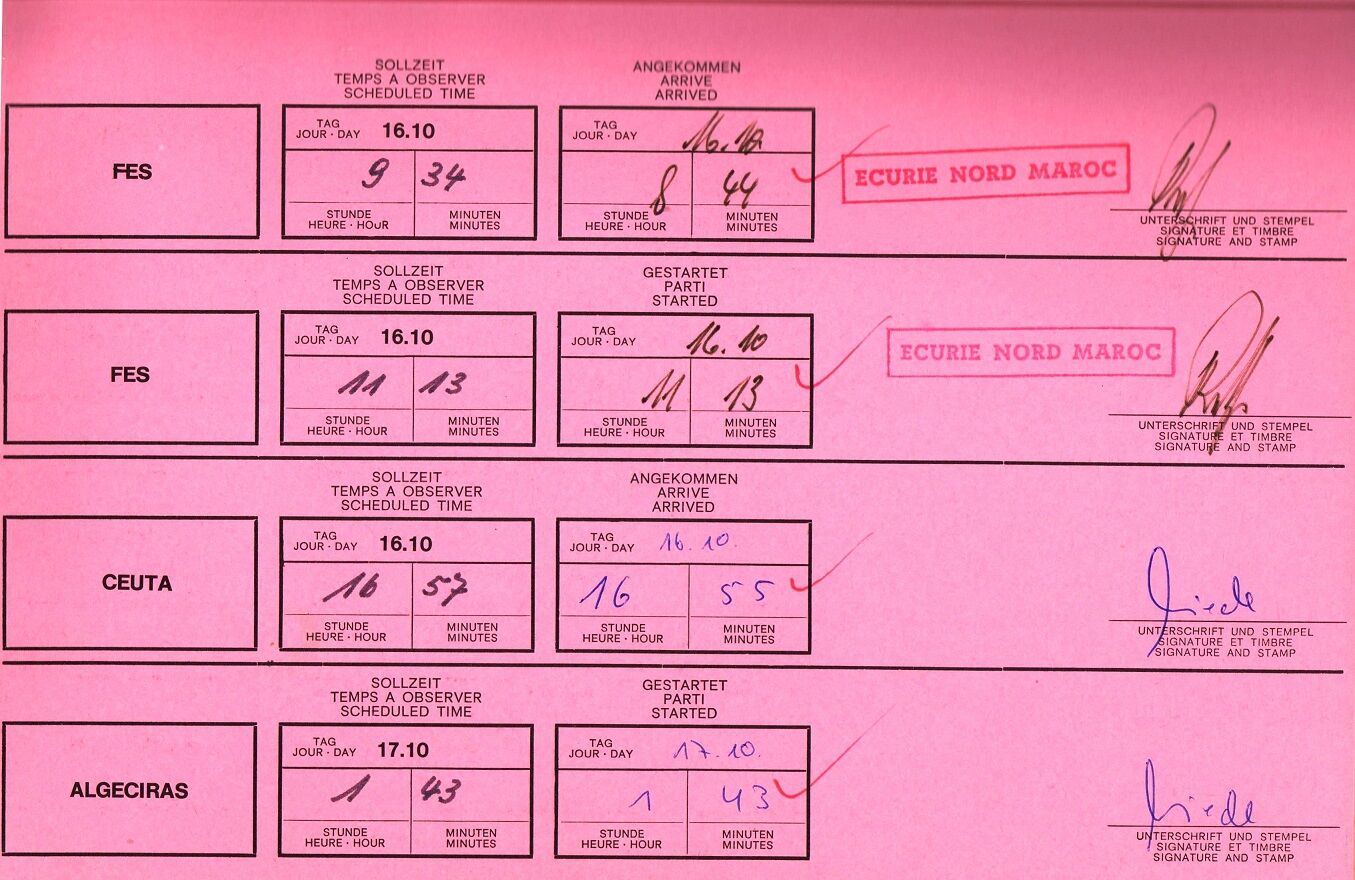 SOLLZEIT
TEMPS A OBSERVER
SCHEDULED TIME
ANGEKOMMEN
ARRIVE
ARRIVED
FES
TAG
JOUR · DAY 16.10
9 34
STUNDE
HEURE · HOUR
MINUTEN
MINUTES
TAG
JOUR · DAY 16.10
8 44
STUNDE
HEURE · HOUR
MINUTEN
MINUTES
ECURIE NORD MAROC
UNTERSCHRIFT UND STEMPEL
SIGNATURE ET TIMBRE
SIGNATURE AND STAMP
SOLLZEIT
TEMPS A OBSERVER
SCHEDULED TIME
GESTARTET
PARTI
STARTED
FES
TAG
JOUR · DAY 16.10
11 13
STUNDE
HEURE · HOUR
MINUTEN
MINUTES
TAG
JOUR · DAY 16.10
11 13
STUNDE
HEURE · HOUR
MINUTEN
MINUTES
ECURIE NORD MAROC
UNTERSCHRIFT UND STEMPEL
SIGNATURE ET TIMBRE
SIGNATURE AND STAMP
SOLLZEIT
TEMPS A OBSERVER
SCHEDULED TIME
ANGEKOMMEN
ARRIVE
ARRIVED
CEUTA
TAG
JOUR · DAY 16.10
16 57
STUNDE
HEURE · HOUR
MINUTEN
MINUTES
TAG
JOUR · DAY 16.10.
16 55
STUNDE
HEURE · HOUR
MINUTEN
MINUTES
UNTERSCHRIFT UND STEMPEL
SIGNATURE ET TIMBRE
SIGNATURE AND STAMP
SOLLZEIT
TEMPS A OBSERVER
SCHEDULED TIME
GESTARTET
PARTI
STARTED
ALGECIRAS
TAG
JOUR · DAY 17.10
1 43
STUNDE
HEURE · HOUR
MINUTEN
MINUTES
TAG
JOUR · DAY 17.10.
1 43
STUNDE
HEURE · HOUR
MINUTEN
MINUTES
UNTERSCHRIFT UND STEMPEL
SIGNATURE ET TIMBRE
SIGNATURE AND STAMP